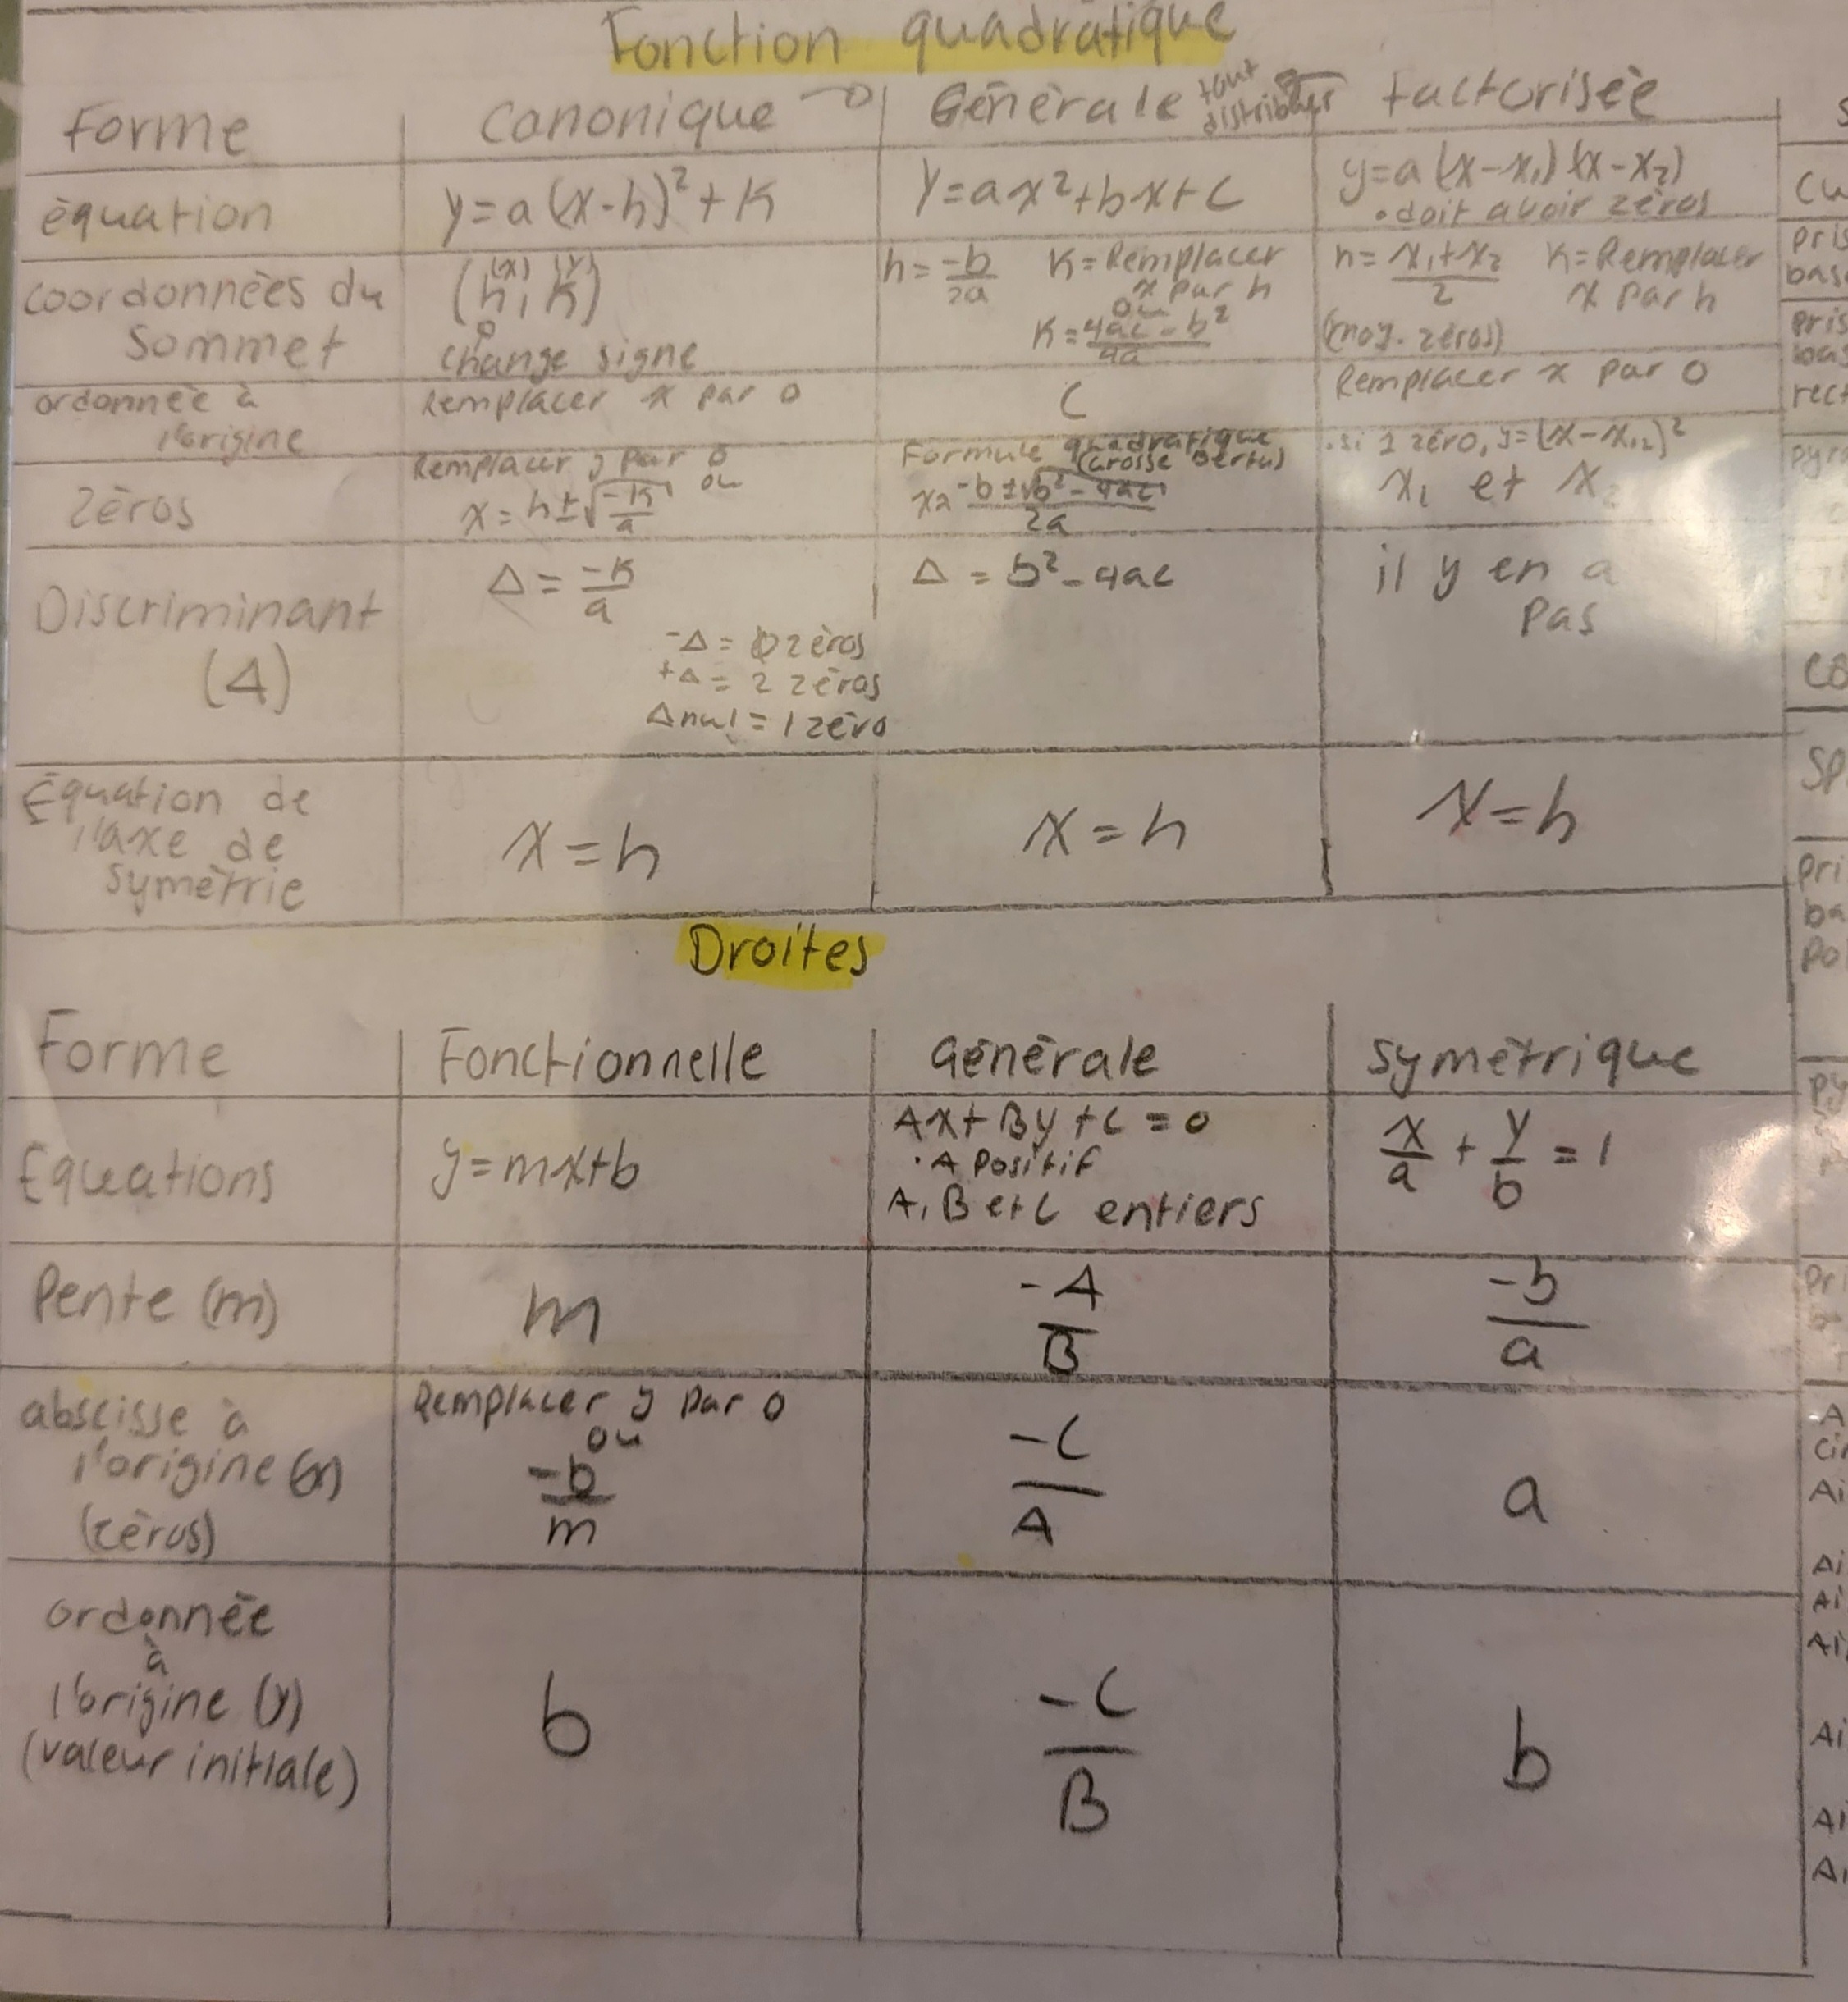 Fonction quadratique
Forme
Canonique
Générale
tout
distribuer
factorisée
équation
y=a(x-h)²+k
y=ax²+bx+c
y=a(x-x₁)(x-x₂)
• doit avoir zéros
coordonnées du
sommet
(x) (y)
(h, k)
change signe
h = -b/2a
k = Remplacer
x par h
ou
k = 4ac-b²/4a
h = x₁+x₂/2
k = Remplacer
x par h
(moy. zéros)
ordonnée à
l'origine
Remplacer x par 0
C
Remplacer x par 0
zéros
Remplacer y par 0
ou
x = h±√-k/a
Formule quadratique
(Grosse Bertha)
x = -b±√b²-4ac/2a
• si 1 zéro, y=(x-x₁,₂)²
x₁ et x₂
Discriminant
(Δ)
Δ = -k/a
-Δ = 0 zéros
+Δ = 2 zéros
Δ nul = 1 zéro
Δ = b²-4ac
il y en a
pas
Équation de
l'axe de
symétrie
x = h
x = h
x = h
Droites
Forme
Fonctionnelle
Générale
symétrique
Equations
y=mx+b
Ax+By+C=0
• A positif
A, B et C entiers
x/a + y/b = 1
Pente (m)
m
-A/B
-b/a
abscisse à
l'origine (x)
(zéros)
Remplacer y par 0
ou
-b/m
-C/A
a
ordonnée
à
l'origine (y)
(valeur initiale)
b
-C/B
b